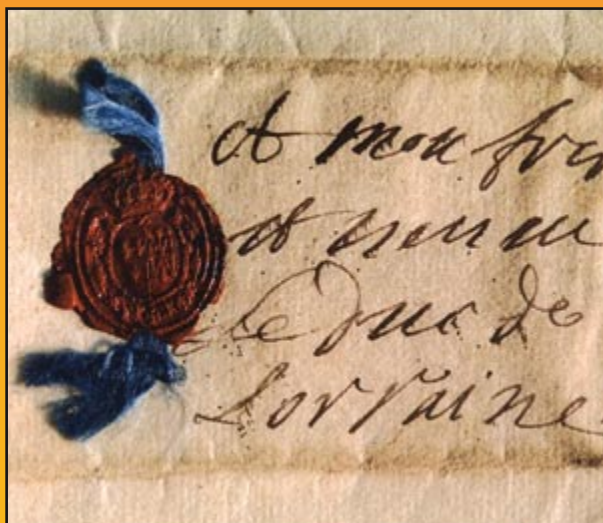 A mon frer
et neueu
Le Duc de
Lorraine